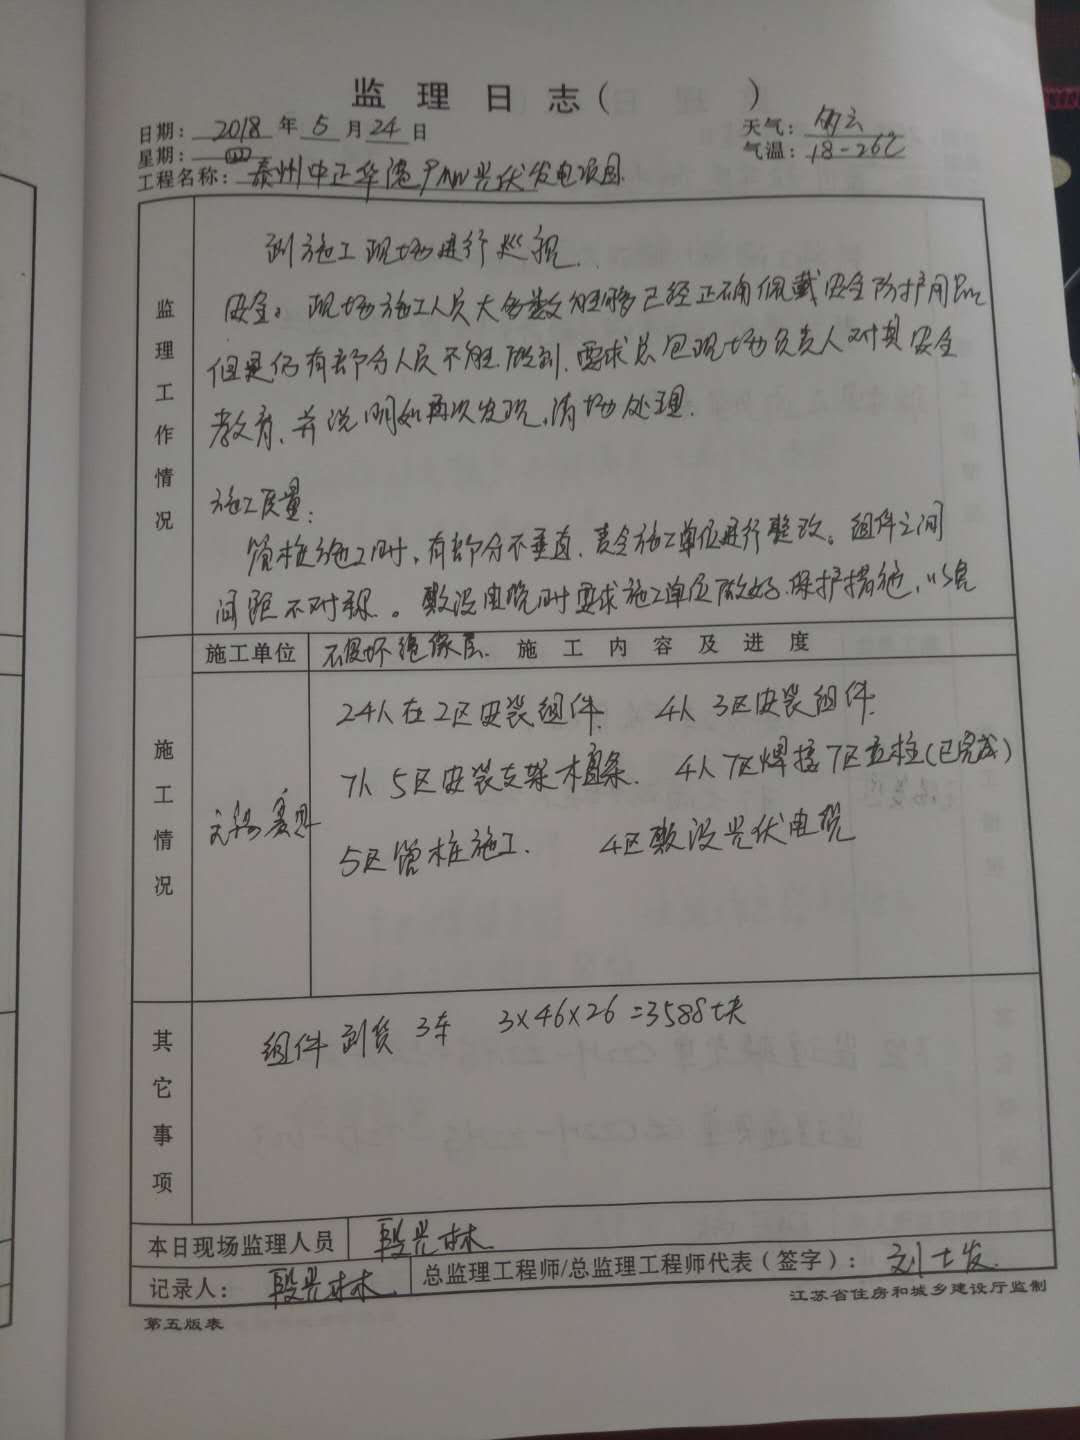 监理日志（ ）
日期：2018年5月24日
天气：多云
星期：四
气温：18-26℃
工程名称：泰州中正华港 MW光伏发电项目
监理工作情况
到施工现场进行巡视.
安全：现场施工人员大多数 能够已经正确佩戴安全防护用品
但是仍有部分人员不能做到.要求总包现场负责人对其安全
教育、并说明如再次发现,清场处理.
施工质量：
管桩施工时，有部分不垂直.责令施工单位进行整改。组件之间
间距不对称。敷设电缆时要求施工单位做好保护措施，以免
施工单位
损坏绝缘层.
施工内容及进度
施工情况
24人在2区安装组件. 4人3区安装组件.
7人5区安装支架木檩条. 4人7区焊接7区立柱(已完成)
5区管桩施工. 4区敷设光伏电缆
其它事项
组件到货3车 3×46×26=3588块
本日现场监理人员 段光林
记录人：段光林
总监理工程师/总监理工程师代表（签字）：刘士发
江苏省住房和城乡建设厅监制
第五版表